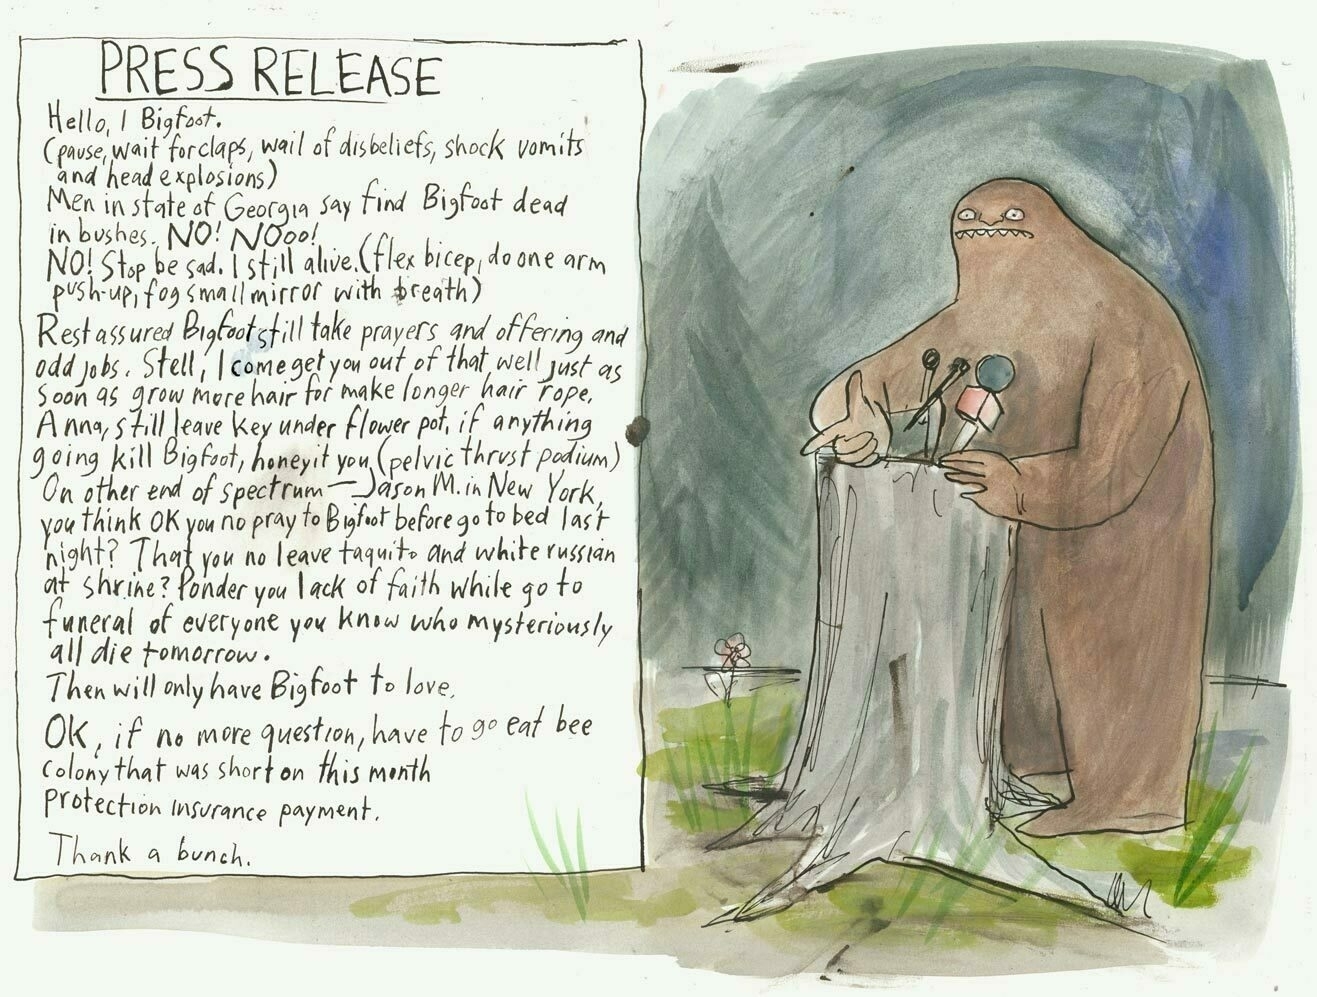 PRESS RELEASE
Hello, I Bigfoot.
(pause, wait for claps, wail of disbeliefs, shock vomits
and head explosions)
Men in state of Georgia say find Bigfoot dead
in bushes. NO! NOoo!
NO! Stop be sad. I still alive. (flex bicep, do one arm
push-up, fog small mirror with breath)
Rest assured Bigfoot still take prayers and offering and
odd jobs. Stell, I come get you out of that well just as
soon as grow more hair for make longer hair rope.
Anna, still leave key under flower pot, if anything
going kill Bigfoot, honey it you, (pelvic thrust podium)
On other end of spectrum — Jason M. in New York,
you think OK you no pray to Bigfoot before go to bed last
night? That you no leave taquito and white russian
at shrine? Ponder you lack of faith while go to
funeral of everyone you know who mysteriously
all die tomorrow.
Then will only have Bigfoot to love.
OK, if no more question, have to go eat bee
colony that was short on this month
protection insurance payment.
Thank a bunch.